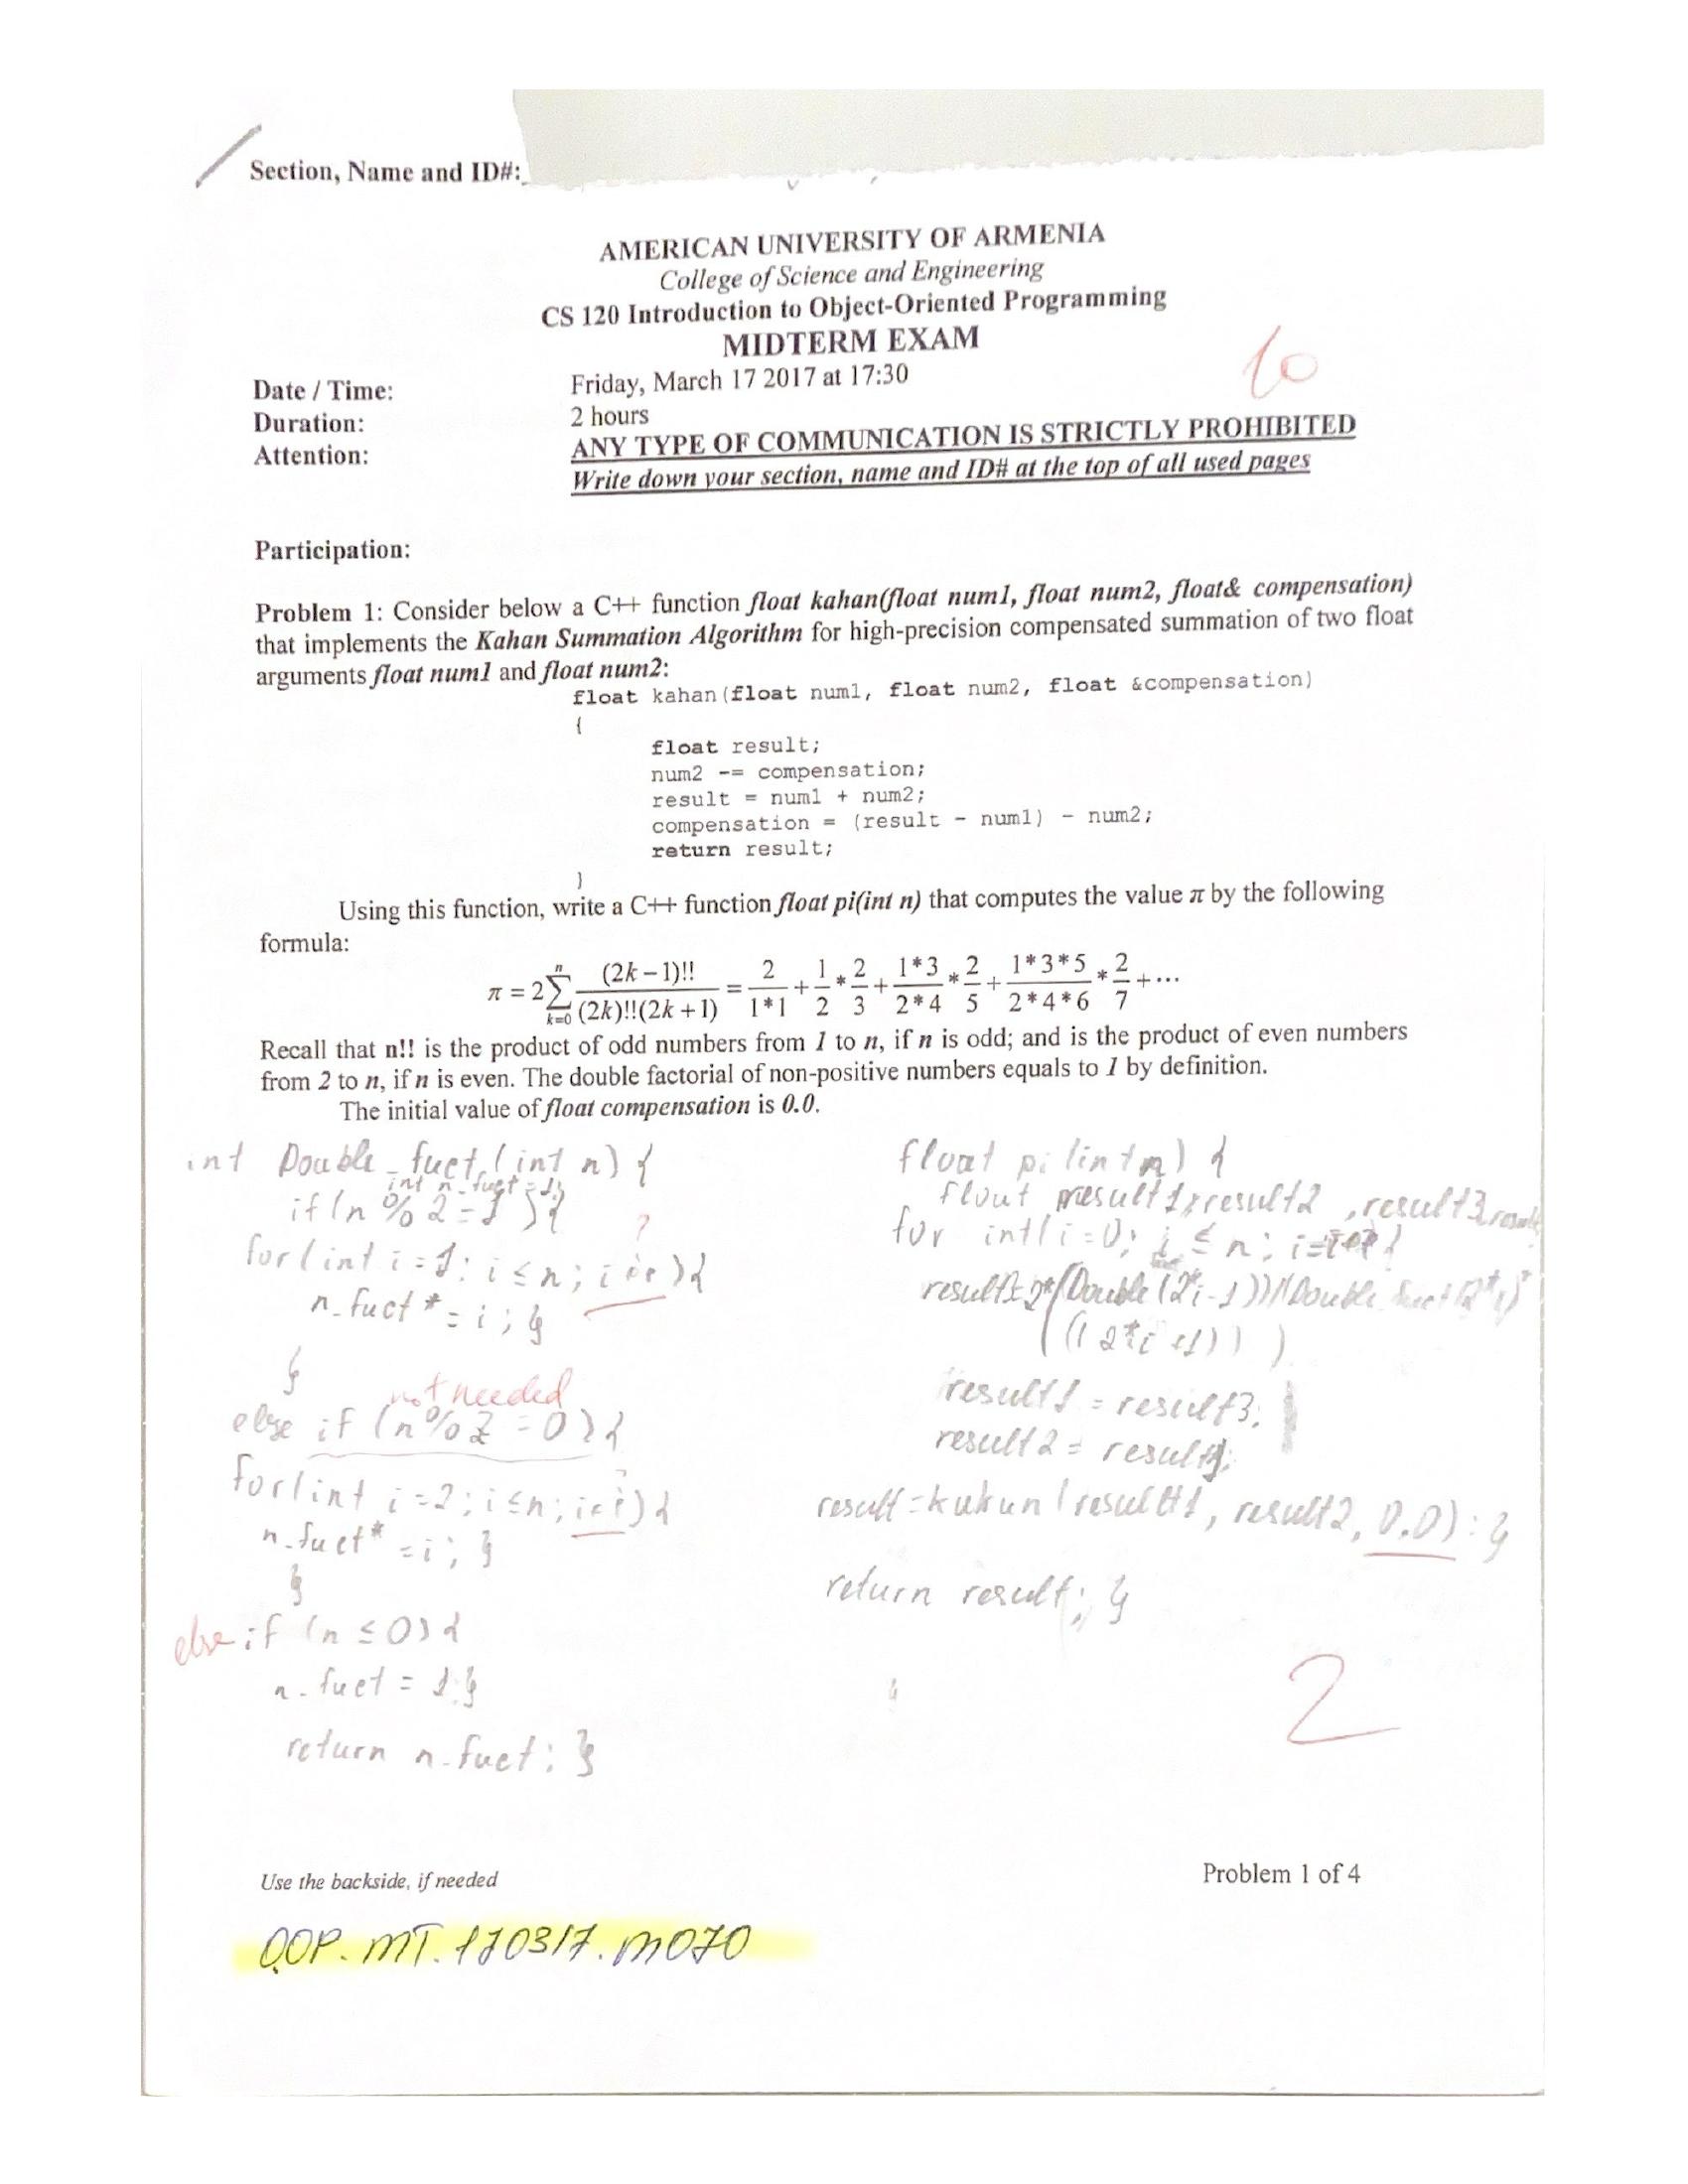 Section, Name and ID#:
AMERICAN UNIVERSITY OF ARMENIA
College of Science and Engineering
CS 120 Introduction to Object-Oriented Programming
MIDTERM EXAM
10
Date / Time: Friday, March 17 2017 at 17:30
Duration: 2 hours
Attention: ANY TYPE OF COMMUNICATION IS STRICTLY PROHIBITED
Write down your section, name and ID# at the top of all used pages
Participation:
Problem 1: Consider below a C++ function float kahan(float num1, float num2, float& compensation)
that implements the Kahan Summation Algorithm for high-precision compensated summation of two float
arguments float num1 and float num2:
float kahan(float num1, float num2, float &compensation)
{
float result;
num2 -= compensation;
result = num1 + num2;
compensation = (result - num1) - num2;
return result;
}
Using this function, write a C++ function float pi(int n) that computes the value π by the following
formula:
π = 2 ∑ k=0 n (2k−1)!! / (2k)!!(2k+1) = 2/1*1 + 1/2 * 2/3 + 1*3/2*4 * 2/5 + 1*3*5/2*4*6 * 2/7 + ···
Recall that n!! is the product of odd numbers from 1 to n, if n is odd; and is the product of even numbers
from 2 to n, if n is even. The double factorial of non-positive numbers equals to 1 by definition.
The initial value of float compensation is 0.0.
int Double_fuct (int n) {
int n_fuct = 1;
if (n % 2 = 1) {
?
for (int i = 1; i ≤ n; ) {
n_fuct *= i; }
}
not needed
else if (n % 2 = 0) {
for (int i = 2; i ≤ n; ) {
n_fuct * = i; }
}
else if (n ≤ 0) {
n_fuct = 1; }
return n_fuct; }
float pi (int n) {
float result1, result2, result3,
for int (i = 0; i ≤ n; {
2*(Double (2*i-1))/(Double fuct (2*i)*
((2*i+1)))
result1 = result3;
result2 =
result = kukun (result1, result2, 0.0); }
return result; }
2
Use the backside, if needed
Problem 1 of 4
OOP. MT. 170317. M070